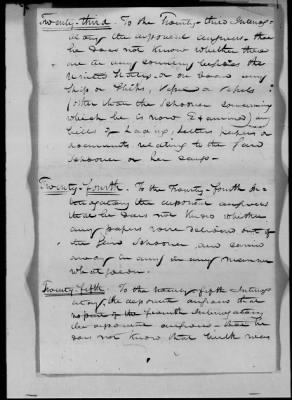 Twenty-third. To the Twenty-third Interrog-
atory the deponent answers that
he does not know whether there
are in any country besides the
United States, or on board any
Ship or Ships, Vessel or Vessels
(other than the Schooner concerning
which he is now Examined) any
bills of Lading, Letters papers or
documents relating to the said
Schooner or her cargo.
Twenty-Fourth. To the Twenty-Fourth In-
terrogatory the deponent answers
that he does not know whether
any papers were delivered out of
the said Schooner and carried
away in any manner
whatsoever.
Twenty-fifth. To the twenty-fifth Interrog-
atory, the deponent answers that
no part of the fourth Interrogatory
the deponent answers - that he
does not know that bulk was